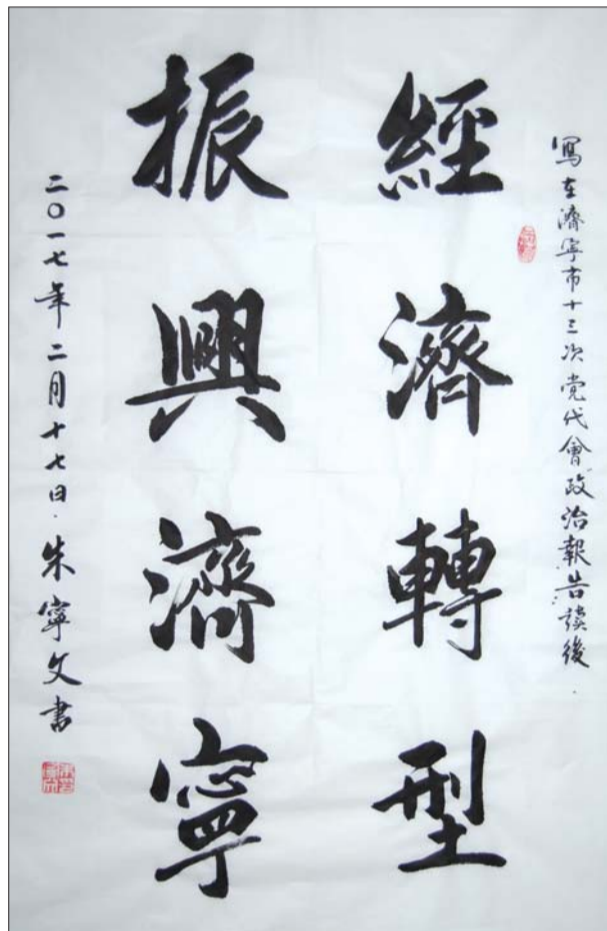 寫在濟寧市十三次党代會政治報告讀後
經濟轉型
振興濟寧
二〇一七年二月十七日·朱寧文書